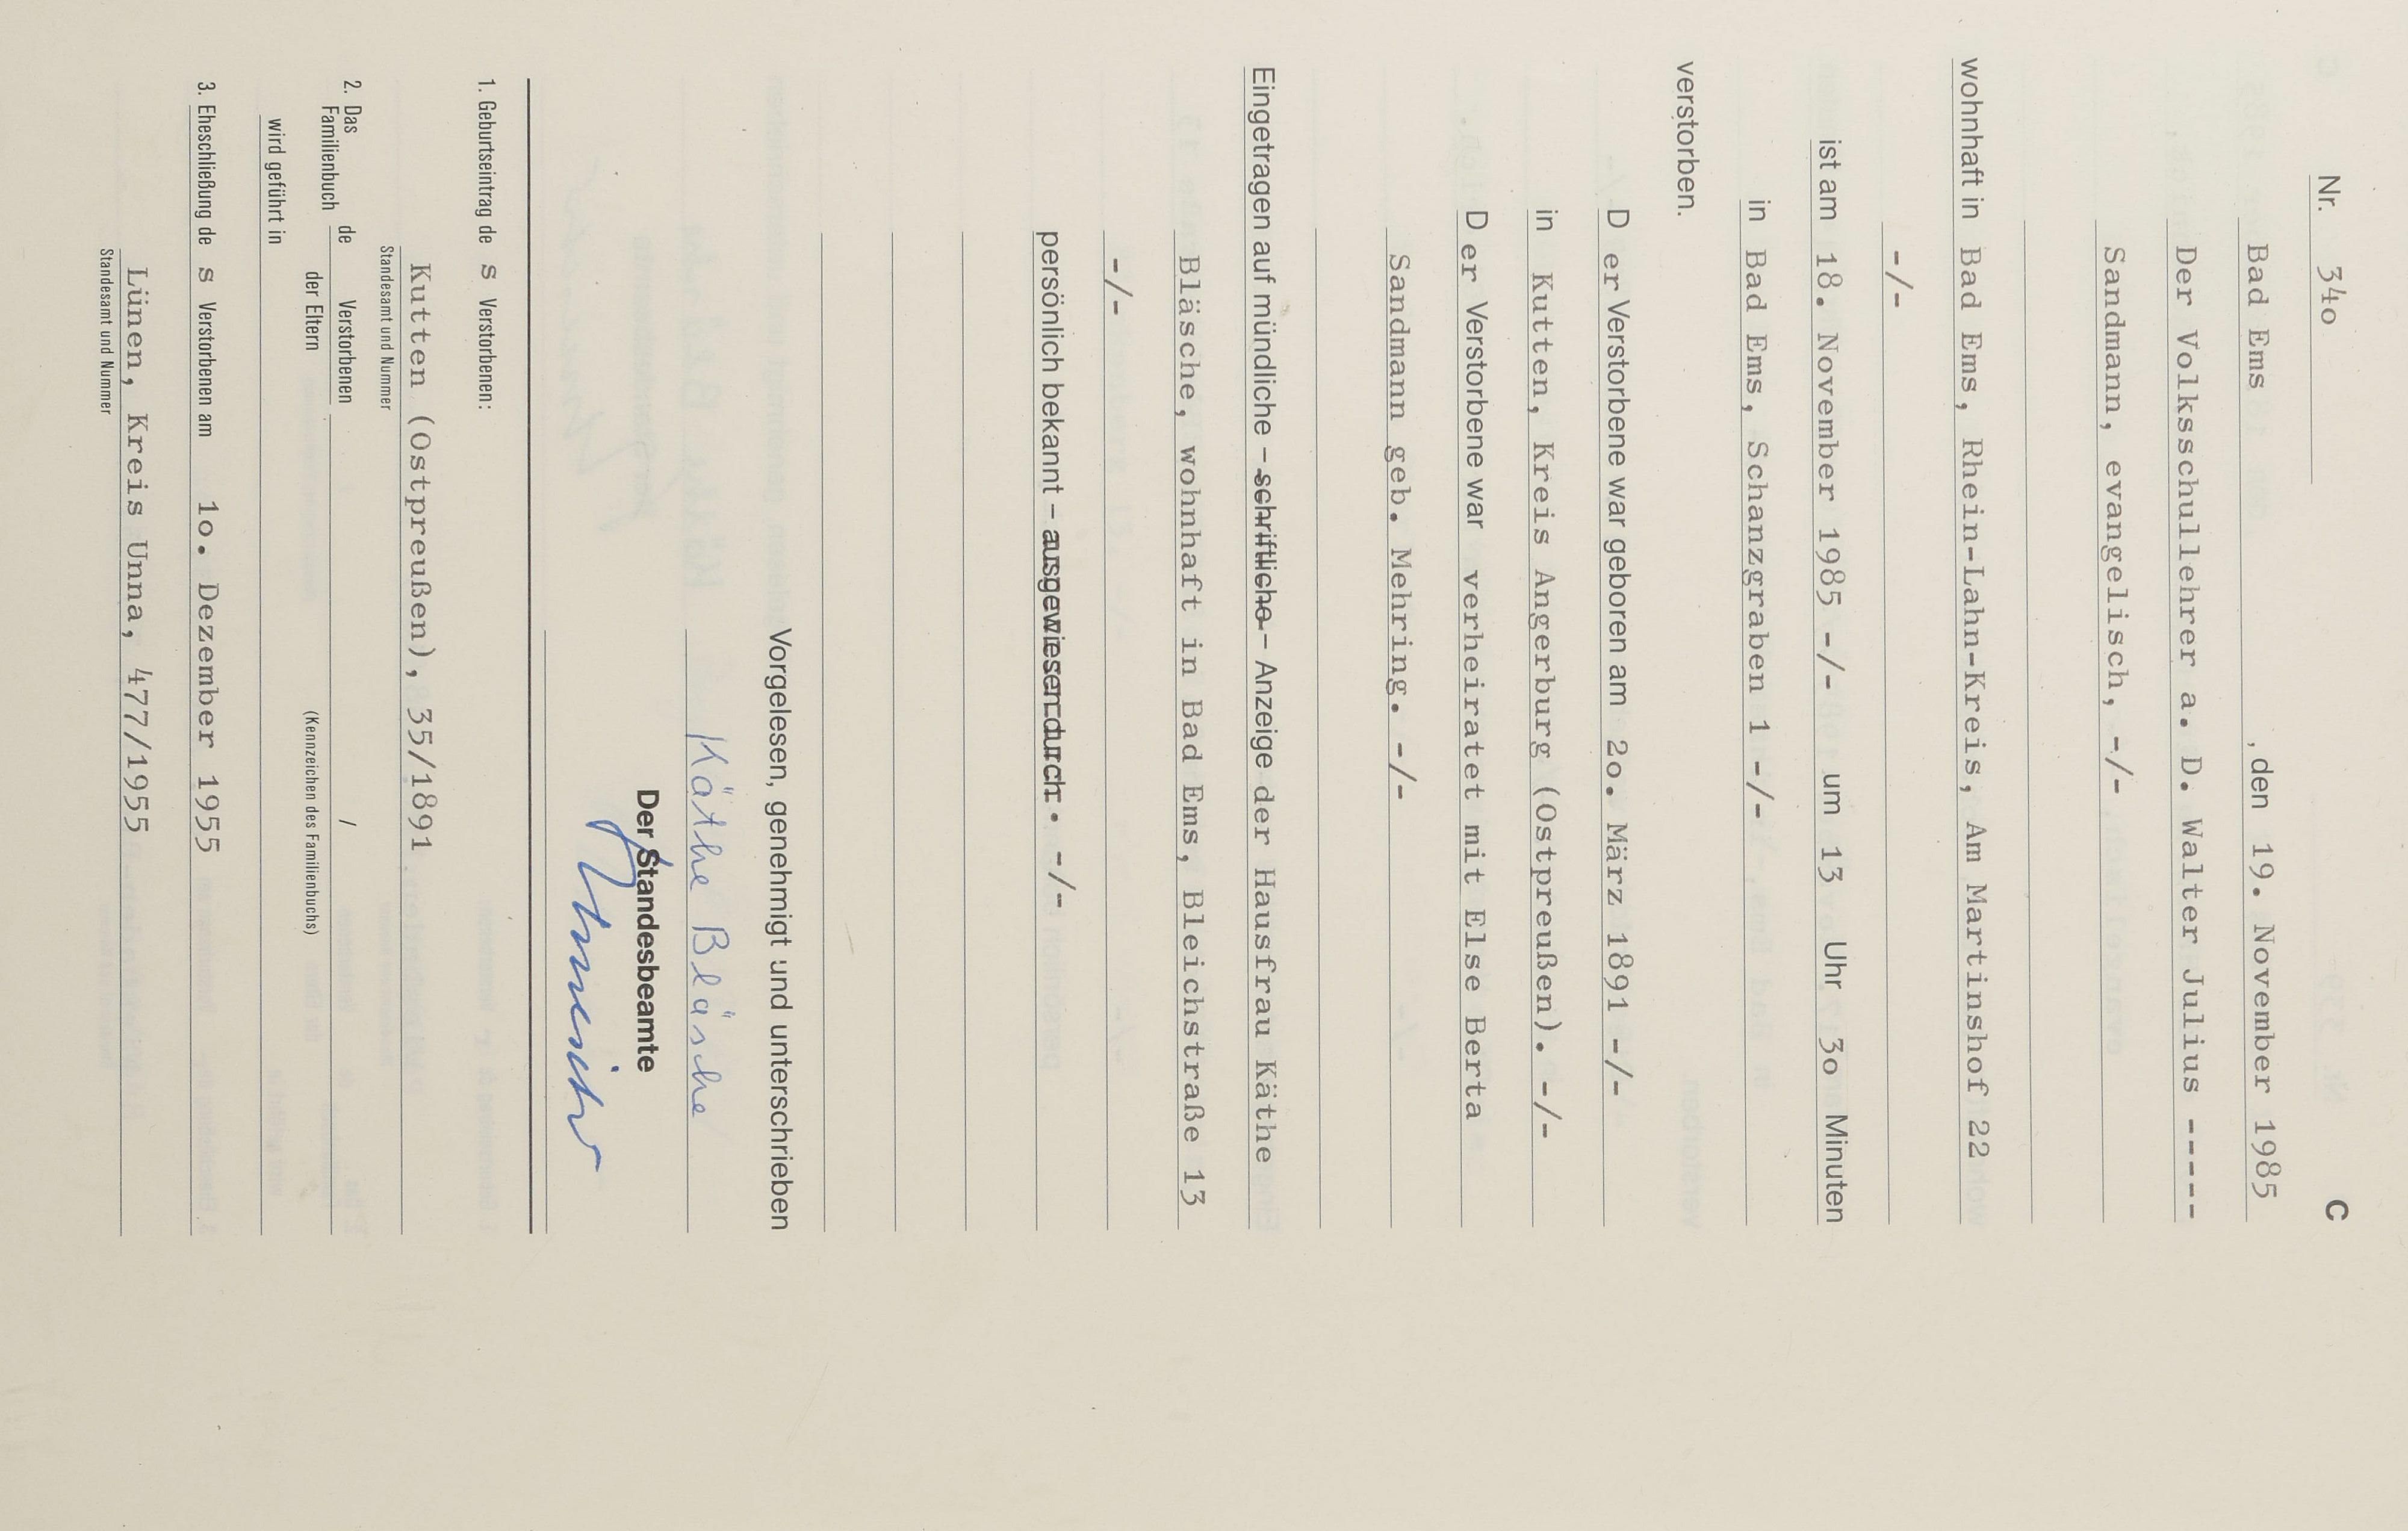 C
Nr. 34o
Bad Ems , den 19. November 1985
Der Volksschullehrer a. D. Walter Julius -----
Sandmann, evangelisch, -/-
wohnhaft in Bad Ems, Rhein-Lahn-Kreis, Am Martinshof 22
-/-
ist am 18. November 1985 -/- um 13 Uhr 3o Minuten
in Bad Ems, Schanzgraben 1 -/-
verstorben.
D er Verstorbene war geboren am 2o. März 1891 -/-
in Kutten, Kreis Angerburg (Ostpreußen). -/-
D er Verstorbene war verheiratet mit Else Berta
Sandmann geb. Mehring. -/-
Eingetragen auf mündliche – schriftliche – Anzeige der Hausfrau Käthe
Bläsche, wohnhaft in Bad Ems, Bleichstraße 13
-/-
persönlich bekannt – ausgewiesen durch . -/-
Vorgelesen, genehmigt und unterschrieben
Käthe Bläsche
Der Standesbeamte
1. Geburtseintrag de s Verstorbenen:
Kutten (Ostpreußen), 35/1891
Standesamt und Nummer
2. Das Familienbuch de Verstorbenen /
der Eltern (Kennzeichen des Familienbuchs)
wird geführt in
3. Eheschließung de s Verstorbenen am 1o. Dezember 1955
Lünen, Kreis Unna, 477/1955
Standesamt und Nummer